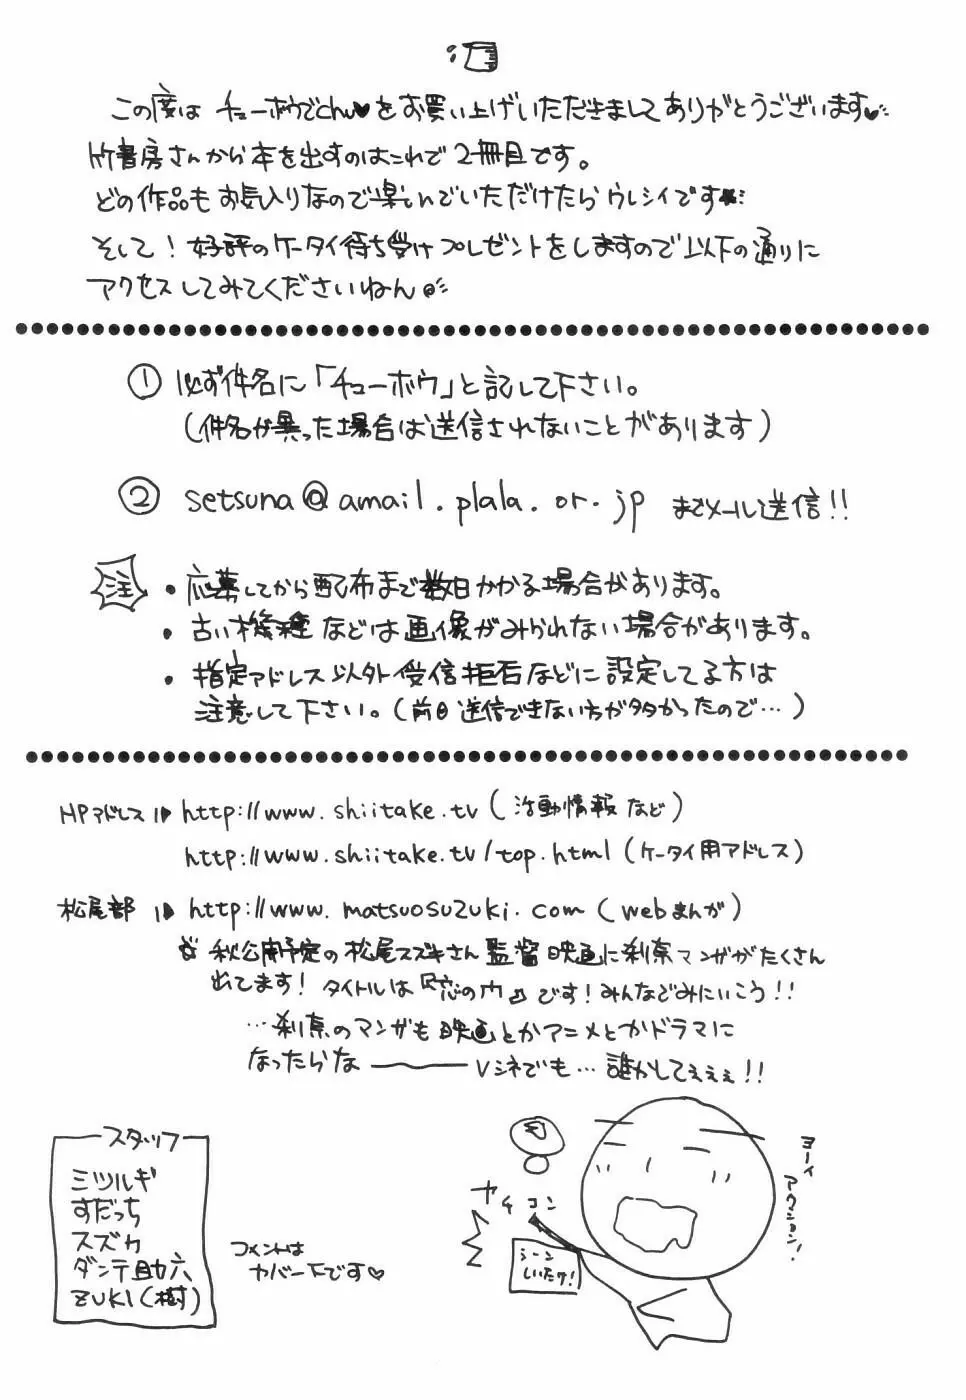 この度は チューボウでchu♥をお買い上げいただきましてありがとうございます♥
竹書房さんから本を出すのはこれで2冊目です。
どの作品もお気入りなので楽しんでいただけたらウレシイです★
そして!好評のケータイ待ち受けプレゼントをしますので以下の通りに
アクセスしてみてくださいねん
① 必ず件名に「チューボウ」と記して下さい。
(件名が異った場合は送信されないことがあります)
② setsuna@amail.plala.or.jp までメール送信!!
注
・応募してから配布まで数日かかる場合があります。
・古い機種などは画像がみられない場合があります。
・指定アドレス以外受信拒否などに設定してる方は
注意して下さい。(前回送信できない方が多かったので…)
HPアドレス http://www.shiitake.tv (活動情報など)
http://www.shiitake.tv/top.html (ケータイ用アドレス)
松尾部 http://www.matsuosuzuki.com (webまんが)
秋公開予定の松尾スズキさん監督映画に刹奈マンガがたくさん
出てます! タイトルは『恋の門』です!みんなでみにいこう!!
…刹奈のマンガも映画とかアニメとかドラマに
なったらな――― Vシネでも…誰かしてぇぇぇ!!
スタッフ
ミツルギ
すだっち
スズカ
ダンテ助六
ZUKI(樹)
コメントは
カバー下です♡
カチコン
シーン
しいたけ!
ヨーイ
アクション!